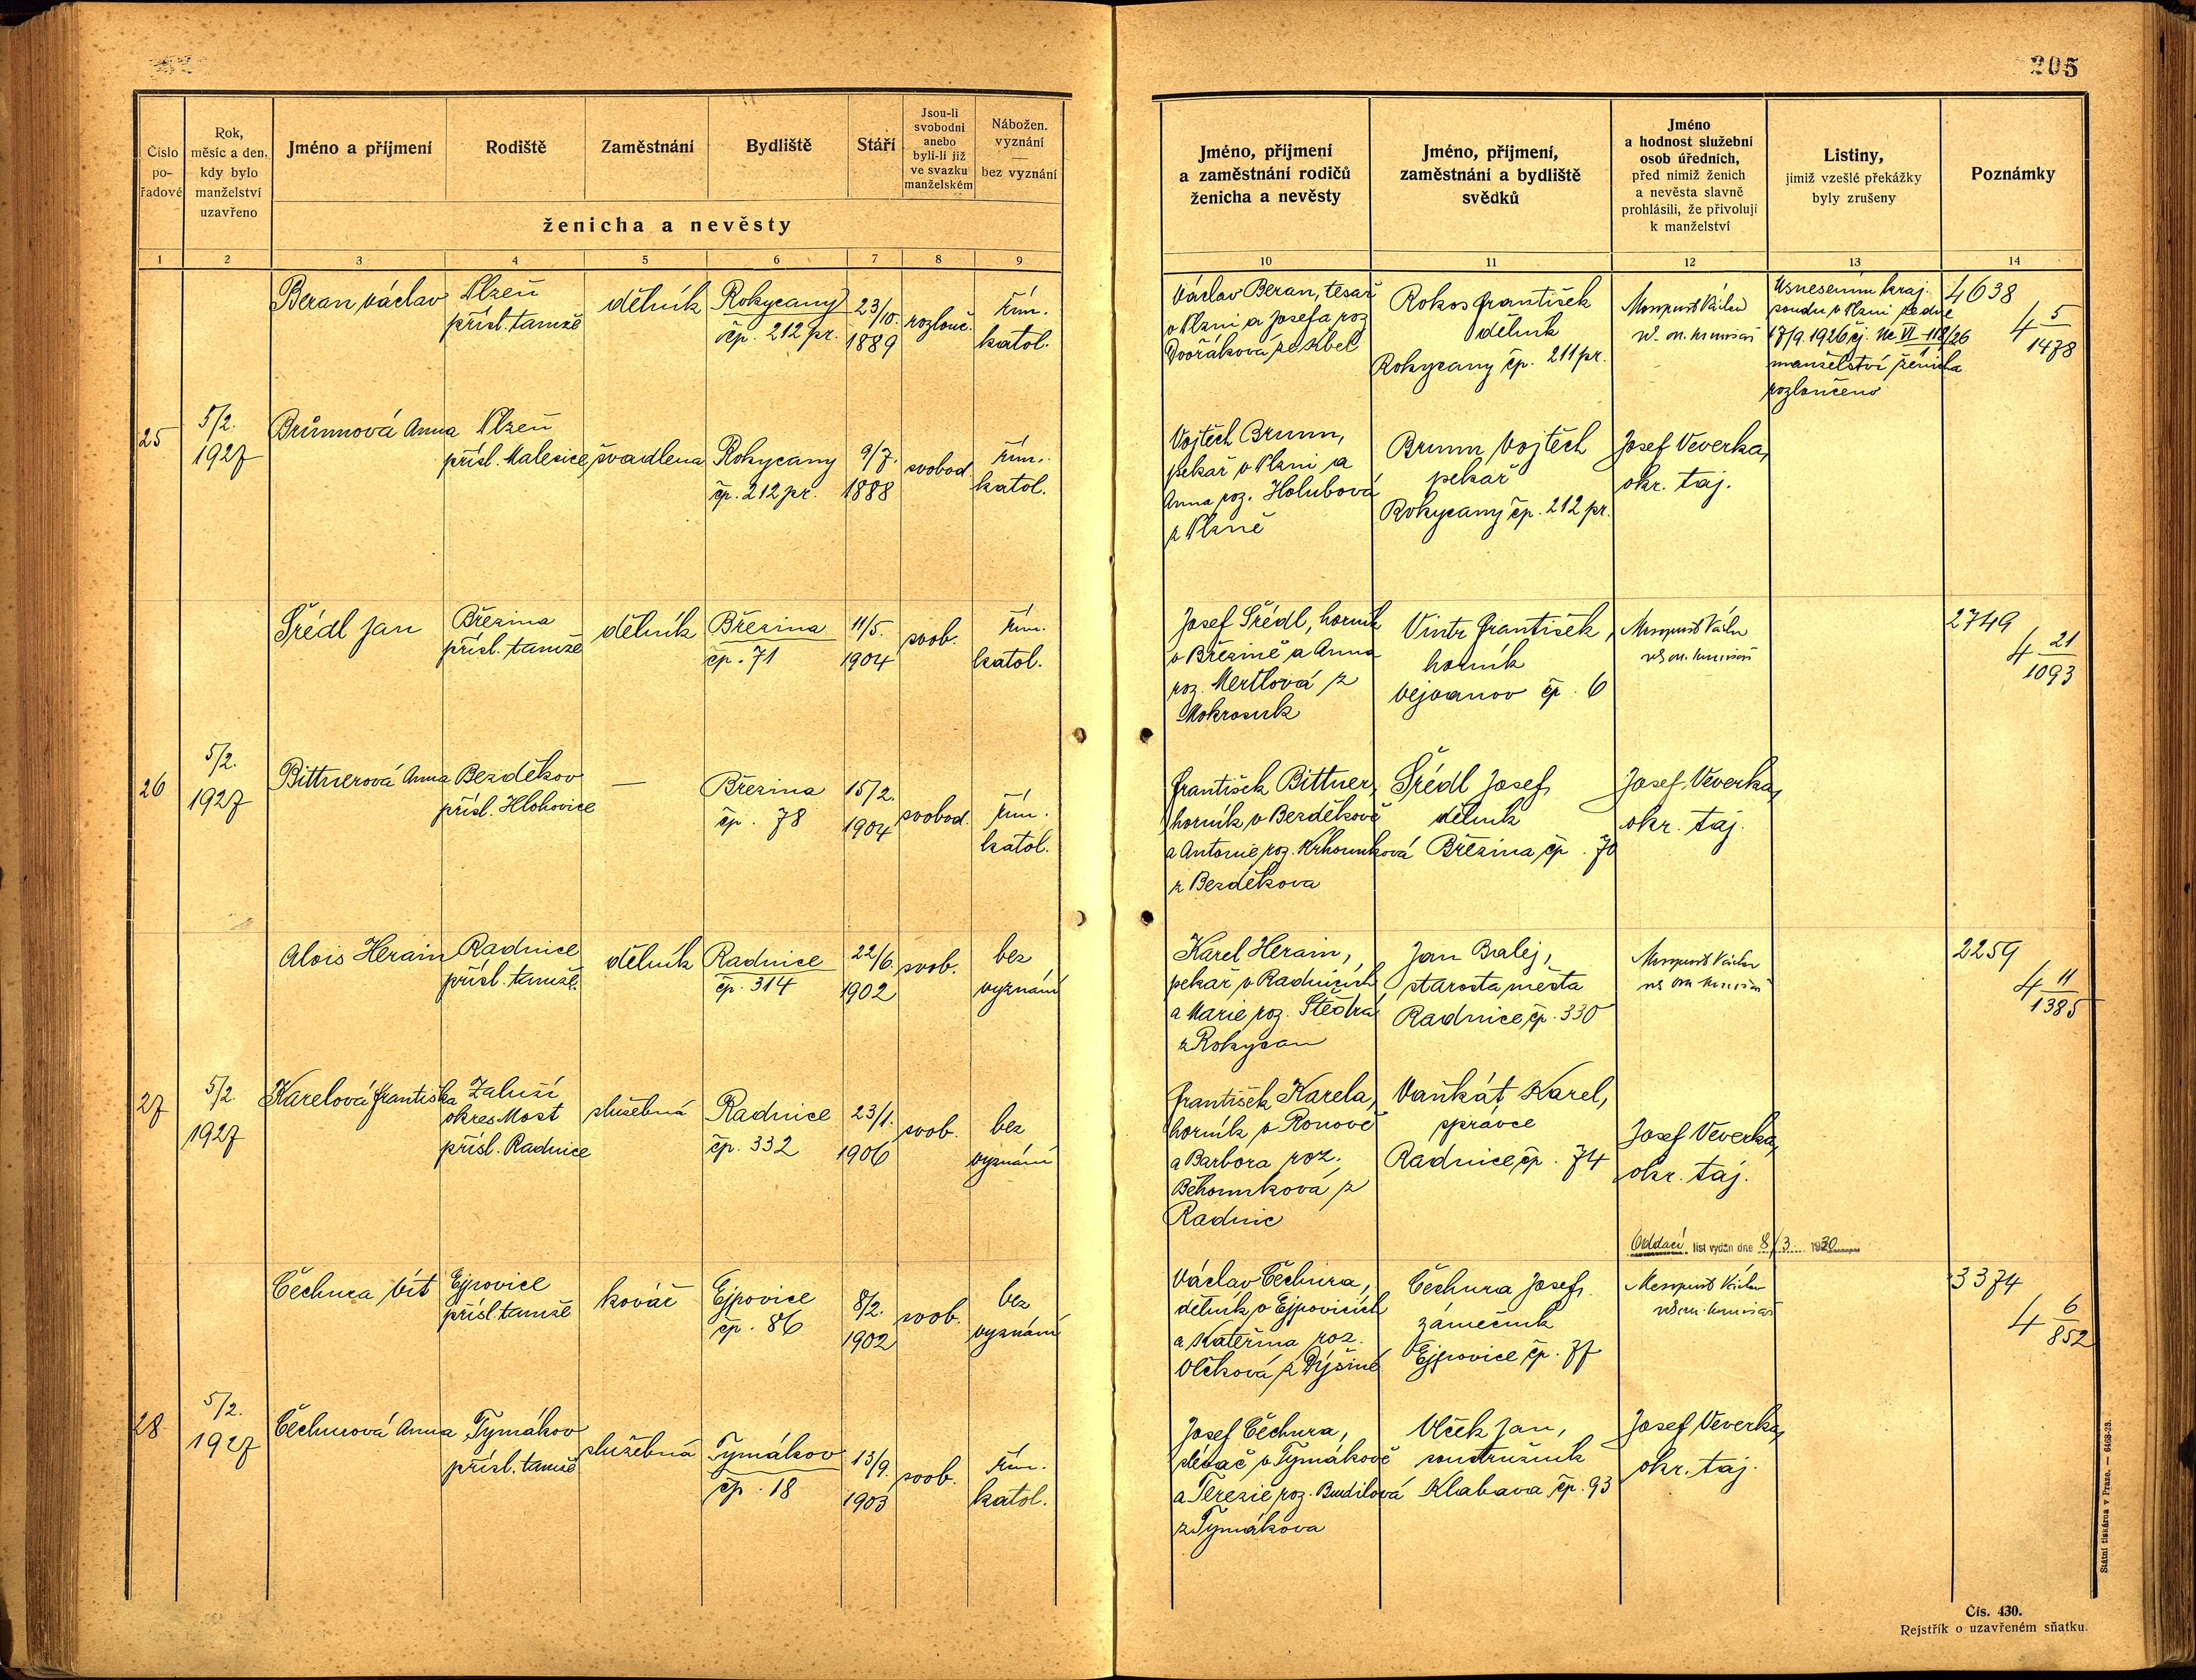 205
Číslo
po-
řadové
Rok,
měsíc a den,
kdy bylo
manželství
uzavřeno
Jméno a příjmení
Rodiště
Zaměstnání
Bydliště
Stáří
Jsou-li
svobodni
anebo
byli-li již
ve svazku
manželském
Nábožen.
vyznání
—
bez vyznání
ženicha a nevěsty
1 2 3 4 5 6 7 8 9
Beran Václav
Plzeň
přísl. tamže
dělník
Rokycany
čp. 212 pr.
23/10.
1889
rozlouč.
řím.
katol.
25
5/2.
1927
Brůnnová Anna
Plzeň
přísl. Malesice
švadlena
Rokycany
čp. 212 pr.
9/7.
1888
svobod.
řím.
katol.
Šrédl Jan
Březina
přísl. tamže
dělník
Březina
čp. 71
11/5.
1904
svob.
řím.
katol.
26
5/2.
1927
Bittnerová Anna
Bezděkov
přísl. Hlohovice
—
Březina
čp. 78
15/2.
1904
svobod.
řím.
katol.
Alois Herain
Radnice
přísl. tamže.
dělník
Radnice
čp. 314
22/6.
1902
svob.
bez
vyznání
27
5/2.
1927
Karelová Františka
Zaluží
okres Most
přísl. Radnice
služebná
Radnice
čp. 332
23/1.
1906
svob.
bez
vyznání
Čechura Vít
Ejpovice
přísl. tamže
kovář
Ejpovice
čp. 86
8/2.
1902
svob.
bez
vyznání
28
5/2.
1927
Čechurová Anna
Tymákov
přísl. tamže
služebná
Tymákov
čp. 18
13/9.
1903
svob.
řím.
katol.
Jméno, příjmení
a zaměstnání rodičů
ženicha a nevěsty
Jméno, příjmení,
zaměstnání a bydliště
svědků
Jméno
a hodnost služební
osob úředních,
před nimiž ženich
a nevěsta slavně
prohlásili, že přivolují
k manželství
Listiny,
jimiž vzešlé překážky
byly zrušeny
Poznámky
10 11 12 13 14
Václav Beran, tesař
v Plzni a Josefa roz.
Dvořákova ze
Rokos František
dělník
Rokycany čp. 211 pr.
Václav
Usnesením kraj.
soudu v Plzni ze dne
17/9. 1926 čj. Nc VI 118/26
manželství ženicha
rozloučeno
4638
4 5/1478
Vojtěch Brunn,
pekař v Plzni a
Anna roz. Holubová
z Plzně
Brunn Vojtěch
pekař
Rokycany čp. 212 pr.
Josef Veverka,
okr. taj.
Josef Šrédl, horník
v Březině a Anna
roz. Mertlová z
Mokrosuk
Vintr František,
horník
Vejvanov čp. 6
Václav
2749
4 21/1093
František Bittner,
horník v Bezděkově
a Antonie roz.
z Bezděkova
Šrédl Josef,
dělník
Březina čp. 70
Josef Veverka,
okr. taj.
Karel Herain,
pekař v Radnicích
a Marie roz. Štědrá
z Rokycan
Jan Bralej,
starosta města
Radnice čp. 330
Václav
2259
4 11/1385
František Karela,
horník v Ronově
a Barbora roz.
Běhounková z
Radnic
Vaňkát Karel,
správce
Radnice čp. 74
Josef Veverka,
okr. taj.
Oddací list vydán dne 8/3. 1930
Václav Čechura,
dělník v Ejpovicích
a Kateřina roz.
Vlčková z Dýšiné
Čechura Josef,
zámečník
Ejpovice čp. 77
Václav
3374
4 6/852
Josef Čechura,
slévač v Tymákově
a Terezie roz. Budilová
z Tymákova
Vlček Jan,
soustružník
Klabava čp. 93
Josef Veverka,
okr. taj.
Státní tiskárna v Praze. — 6468-23.
Čís. 430.
Rejstřík o uzavřeném sňatku.